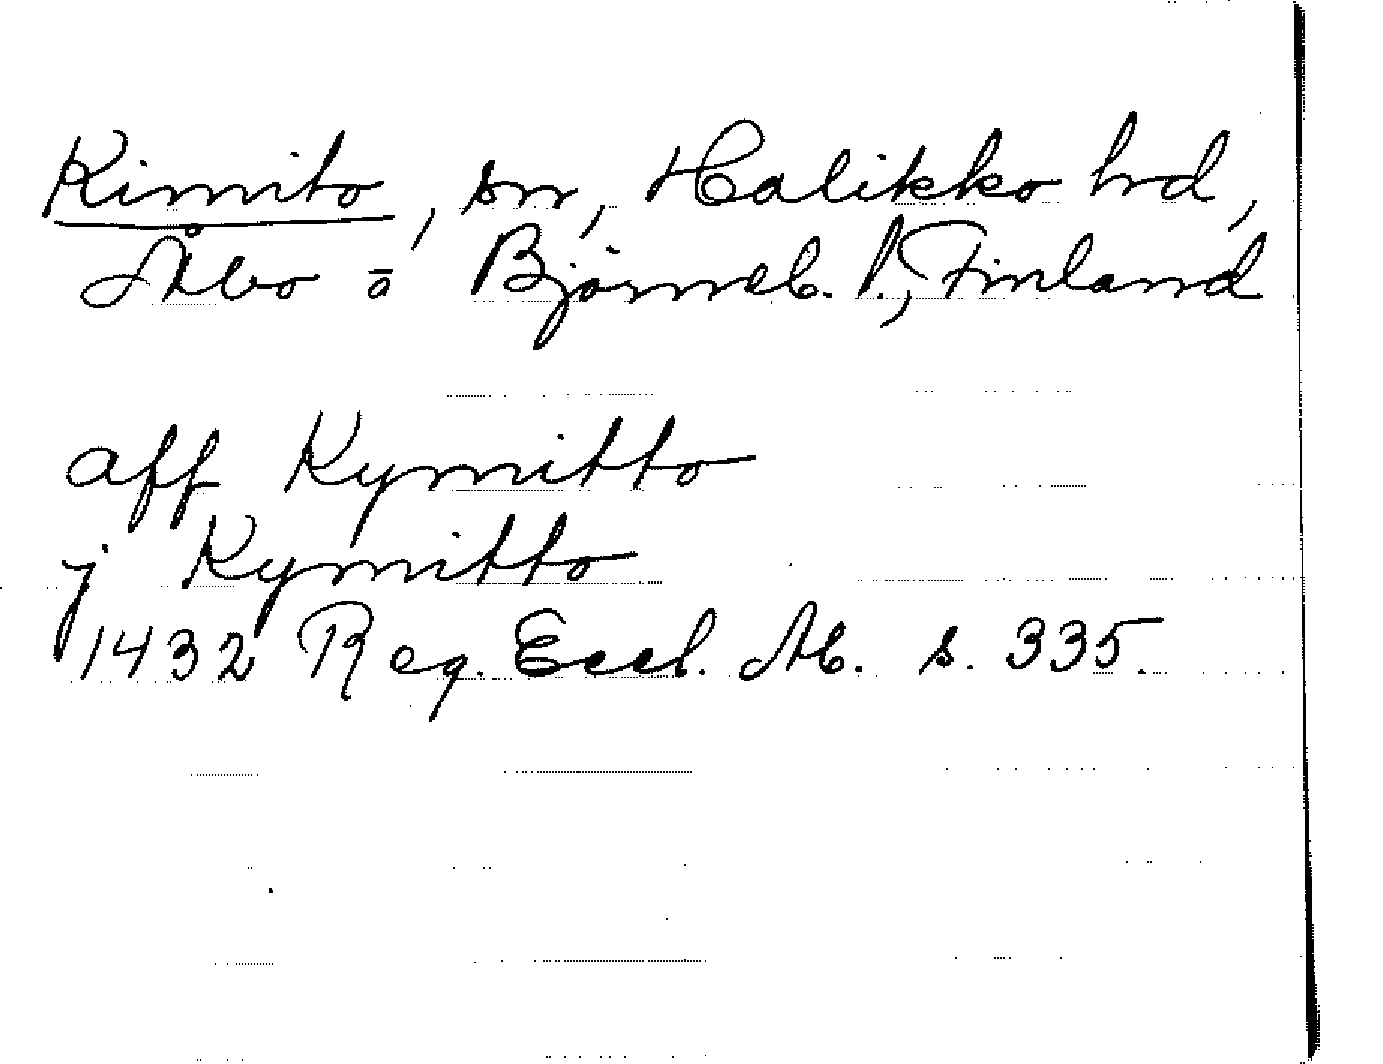 Kimito, sn, Halikko hd,
Åbo ō Björneb. l., Finland
aff Kymitto
j Kymitto
1432 Reg. Eccl. Ab. s. 335.